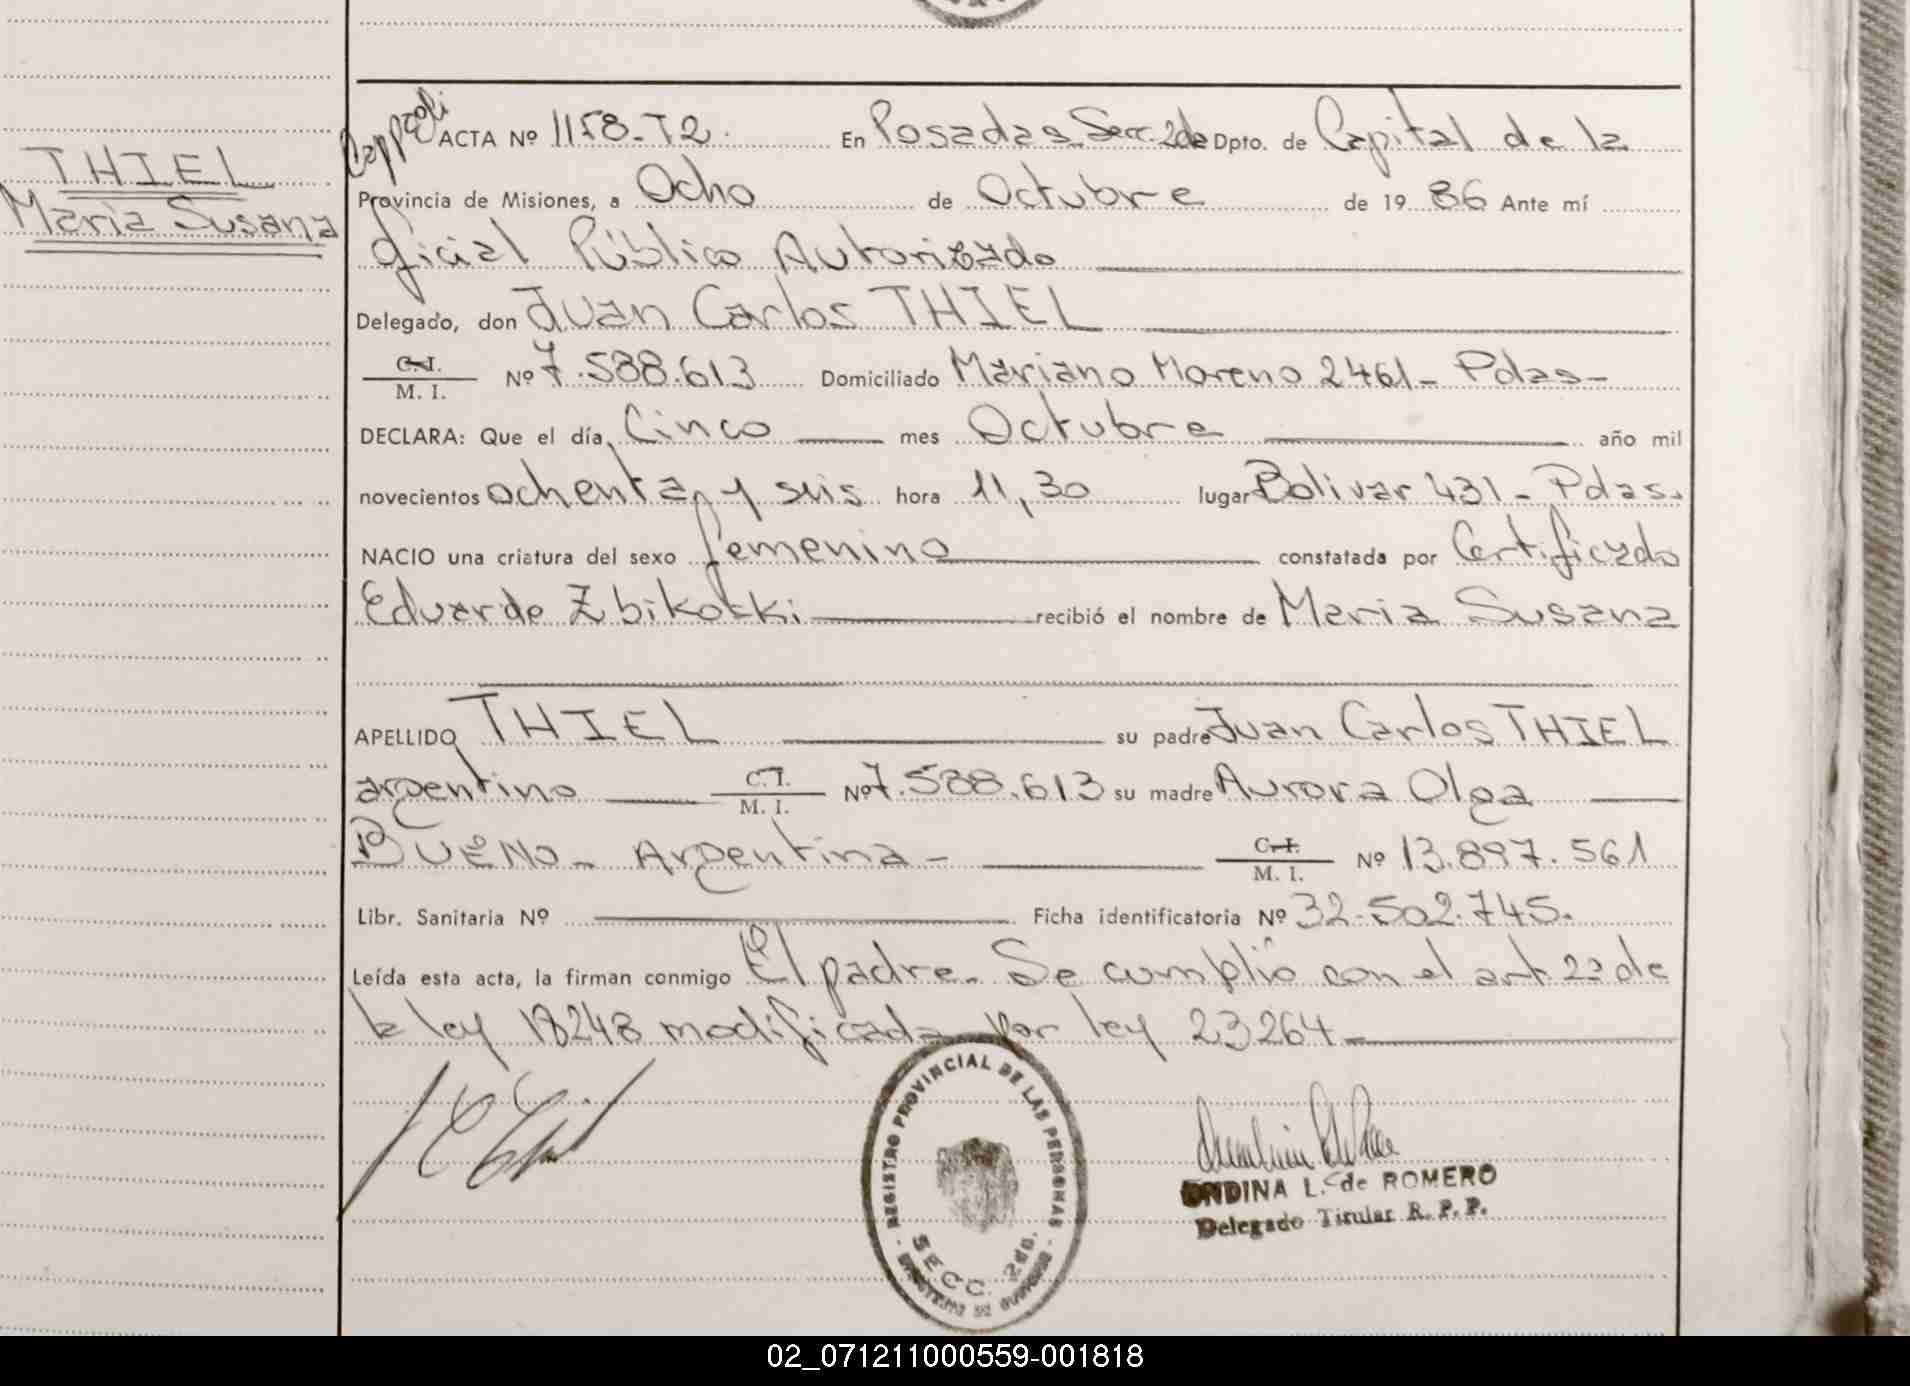 THIEL
Maria Susana
ACTA Nº 1158-T2. En Posadas Secc. 2da Dpto. de Capital de la
Provincia de Misiones, a Ocho de Octubre de 1986 Ante mí
Oficial Público Autorizado
Delegado, don Juan Carlos THIEL
C.I. M. I. Nº 7.588.613 Domiciliado Mariano Moreno 2461- Pdas-
DECLARA: Que el día, Cinco mes Octubre año mil
novecientos ochenta y seis hora 11,30 lugar Bolivar 431- Pdas.
NACIO una criatura del sexo femenino constatada por Certificado
Eduardo recibió el nombre de Maria Susana
APELLIDO THIEL su padre Juan Carlos THIEL
argentino C.I. M. I. Nº 7.588.613 su madre Aurora Olga
BUENO- Argentina- C.I. M. I. Nº 13.897.561
Libr. Sanitaria Nº Ficha identificatoria Nº 32.502.745.
Leída esta acta, la firman conmigo El padre. Se cumplió con el art 2º de
la ley 18248 modificada por ley 23264
REGISTRO PROVINCIAL DE LAS PERSONAS
SECC. 2da.
ONDINA L. de ROMERO
Delegado Titular R. P. P.
02_071211000559-001818